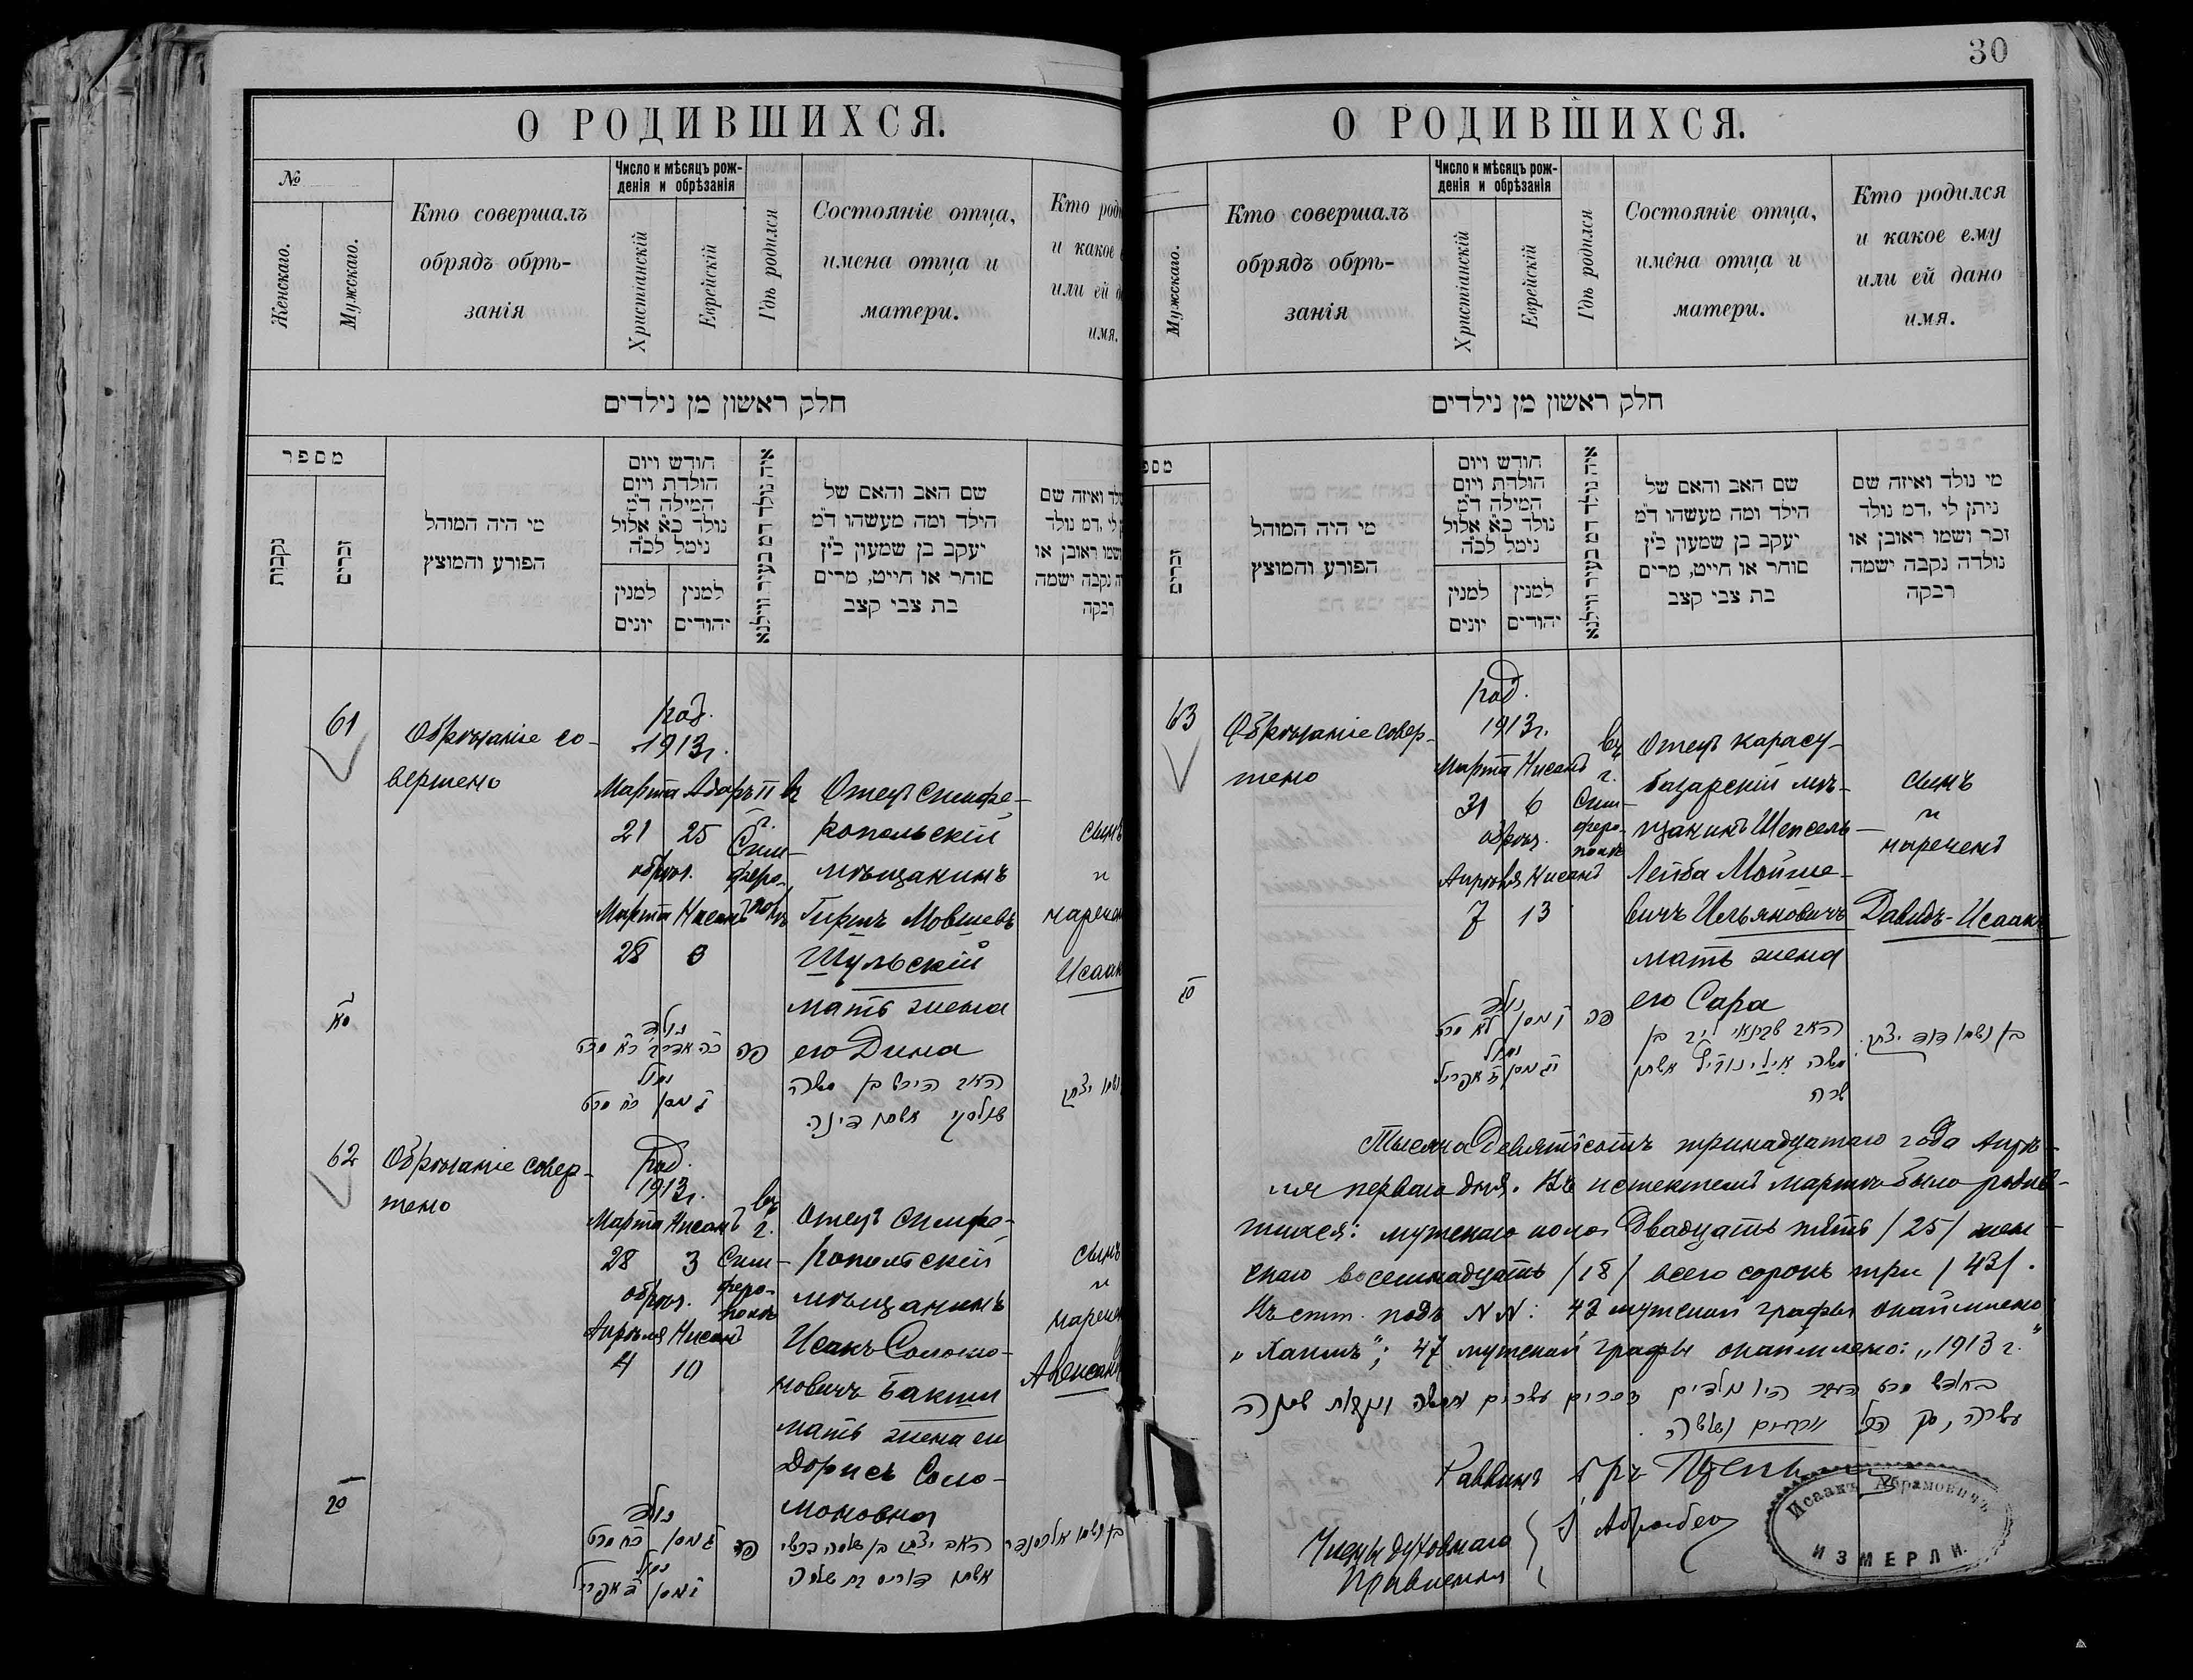 30
О РОДИВШИХСЯ.
№
Женскаго.
Мужскаго.
Кто совершалъ
обрядъ обрѣ-
занія
Число и мѣсяцъ рож-
денія и обрѣзанія
Христіанскій
Еврейскій
Гдѣ родился
Состояніе отца,
имена отца и
матери.
Кто роди
и какое
или ей д
имя.
חלק ראשון מן נילדים
מספר
נקבות
זכרים
מי היה המוהל
הפורע והמוצץ
חודש ויום
הולדת ויום
המילה ד״מ
נולד כ״א אלול
נימל לכ״ה
למנין
יונים
למנין
יהודים
איה נולד דמ בעיר ווילנא
שם האב והאם של
הילד ומה מעשהו ד״מ
יעקב בן שמעון כ״ץ
סוחר או חייט, מרים
בת צבי קצב
לד ואיזה שם
לי ,דמ נולד
ושמו ראובן או
ה נקבה ישמה
רבקה
61
Обрѣзаніе со-
вершено
род.
1913г.
Марта Адаръ II
21 25
обрѣз.
Марта Нисанъ
28
въ
г.
Сим-
феро-
полѣ
Отецъ симфе-
ропольскій
мѣщанинъ
Гиршъ Мовшевъ
Шульскій
мать жена
его Дина
сынъ
и
наречен
Исаак
נולד
כ״ה אדר ב׳ כ״א מרט
נימול
פה
האב הירש בן משה
שולסקי אשתו דינה
ושמו יצחק
62
Обрѣзаніе совер-
шено
род.
1913г.
Марта Нисанъ
28 3
обрѣз.
Апрѣля Нисанъ
4 10
въ
г.
Сим-
феро-
полѣ
Отецъ симфе-
ропольскій
мѣщанинъ
Исакъ Соломо-
новичъ Бакши
мать жена его
Дорисъ Соло-
моновна
сынъ
и
наречен
Александ
20
נולד
ג׳ ניסן כ״ח מרט
נימול
י׳ ניסן ד׳ אפריל
פה
האב יצחק בן שלמה בקשי
אשתו דוריס בת שלמה
בן ושמו אלכסנדר
О РОДИВШИХСЯ.
Мужскаго.
Кто совершалъ
обрядъ обрѣ-
занія
Число и мѣсяцъ рож-
денія и обрѣзанія
Христіанскій
Еврейскій
Гдѣ родился
Состояніе отца,
имена отца и
матери.
Кто родился
и какое ему
или ей дано
имя.
חלק ראשון מן נילדים
מספ
זכרים
מי היה המוהל
הפורע והמוצץ
חודש ויום
הולדת ויום
המילה ד״מ
נולד כ״א אלול
נימל לכ״ה
למנין
יונים
למנין
יהודים
איה נולד דמ בעיר ווילנא
שם האב והאם של
הילד ומה מעשהו ד״מ
יעקב בן שמעון כ״ץ
סוחר או חייט, מרים
בת צבי קצב
מי נולד ואיזה שם
ניתן לי ,דמ נולד
זכר ושמו ראובן או
נולדה נקבה ישמה
רבקה
63
Обрѣзаніе совер-
шено
род.
1913г.
Марта Нисанъ
31 6
обрѣз.
Апрѣля Нисанъ
7 13
въ
г.
Сим-
феро-
полѣ
Отецъ карасу-
базарскій мѣ-
щанинъ Шепсель-
Лейба Мойше-
вичъ Ильяновичъ
мать жена
его Сара
сынъ
и
нареченъ
Давидъ-Исаакъ
נולד
ו׳ ניסן ל״א מרט
נימול
י״ג ניסן ז׳ אפריל
פה
משה איליינוביץ אשתו
שרה
בן ושמו דוד יצחק.
Тысяча Девятьсотъ тринадцатаго года Апрѣ-
ля перваго дня. Въ истекшемъ мартѣ было родив-
шихся: мужскаго пола Двадцать пять /25/ жен-
скаго восемнадцать /18/ всего сорокъ три /43/.
Въ ст. подъ NN: 42 мужской графы окаймлено:
„Хаимъ“; 47 мужской графы окаймлено: „1913 г.“
בחודש מרט העבר היו נולדים זכרים עשרים וחמשה ונקבות שמונה
עשרה, סך הכל ארבעים ושלשה.
Раввинъ
Члены духовнаго
Правленія
Исаакъ Абрамовичъ
ИЗМЕРЛИ.